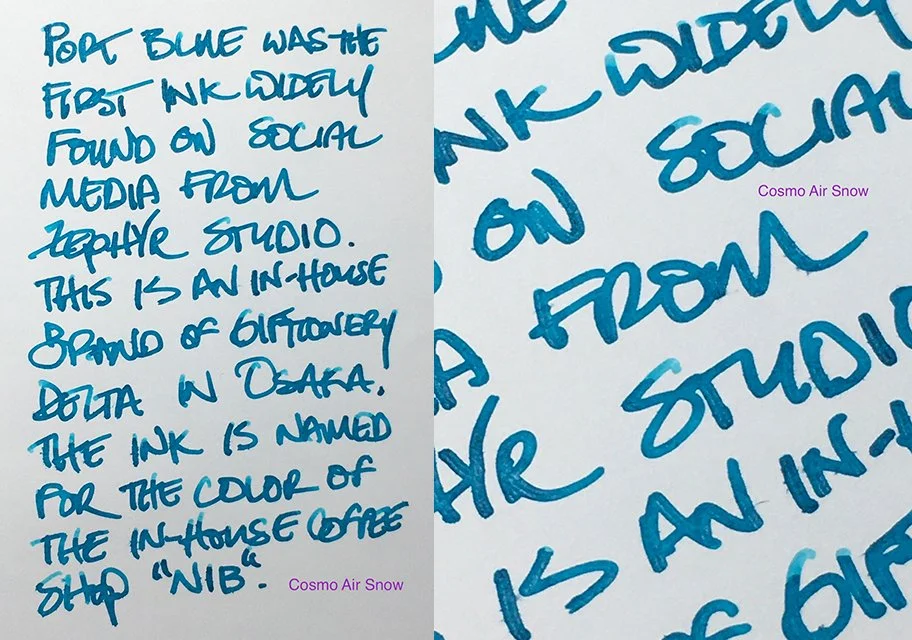 PORT BLUE WAS THE
FIRST INK WIDELY
FOUND ON SOCIAL
MEDIA FROM
ZEPHYR STUDIO.
THIS IS AN IN-HOUSE
BRAND OF GIFTIONERY
DELTA IN OSAKA.
THE INK IS NAMED
FOR THE COLOR OF
THE IN-HOUSE COFFEE
SHOP "NIB".
Cosmo Air Snow
UE
INK WIDELY
ON SOCIAL
Cosmo Air Snow
A FROM
HYR STUDIO
IS AN IN-H
OF GIFT